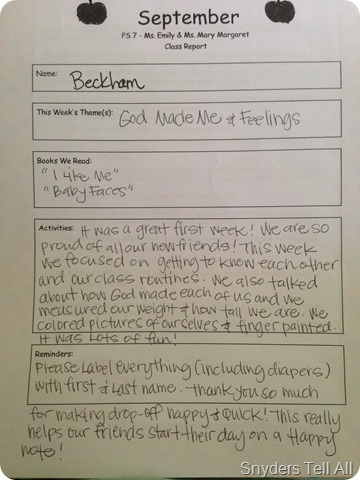 September
PS 7 - Ms. Emily & Ms. Mary Margaret
Class Report
Name: Beckham
This Week's Theme(s): God Made Me & Feelings
Books We Read:
"I Like Me"
"Baby Faces"
Activities: It was a great first week! We are so
proud of all our new friends! This week
we focused on getting to know each other
and our class routines. We also talked
about how God made each of us and we
measured our weight & how tall we are. We
colored pictures of ourselves & finger painted.
It was lots of fun!
Reminders:
Please Label everything (including diapers)
with first & Last name. Thank you so much
for making drop-off happy & quick! This really
helps our friends start their day on a Happy
note!
Snyders Tell All